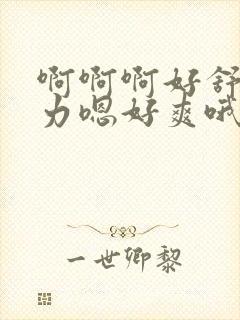 啊啊啊好舒
力嗯好爽哦
一世卿黎